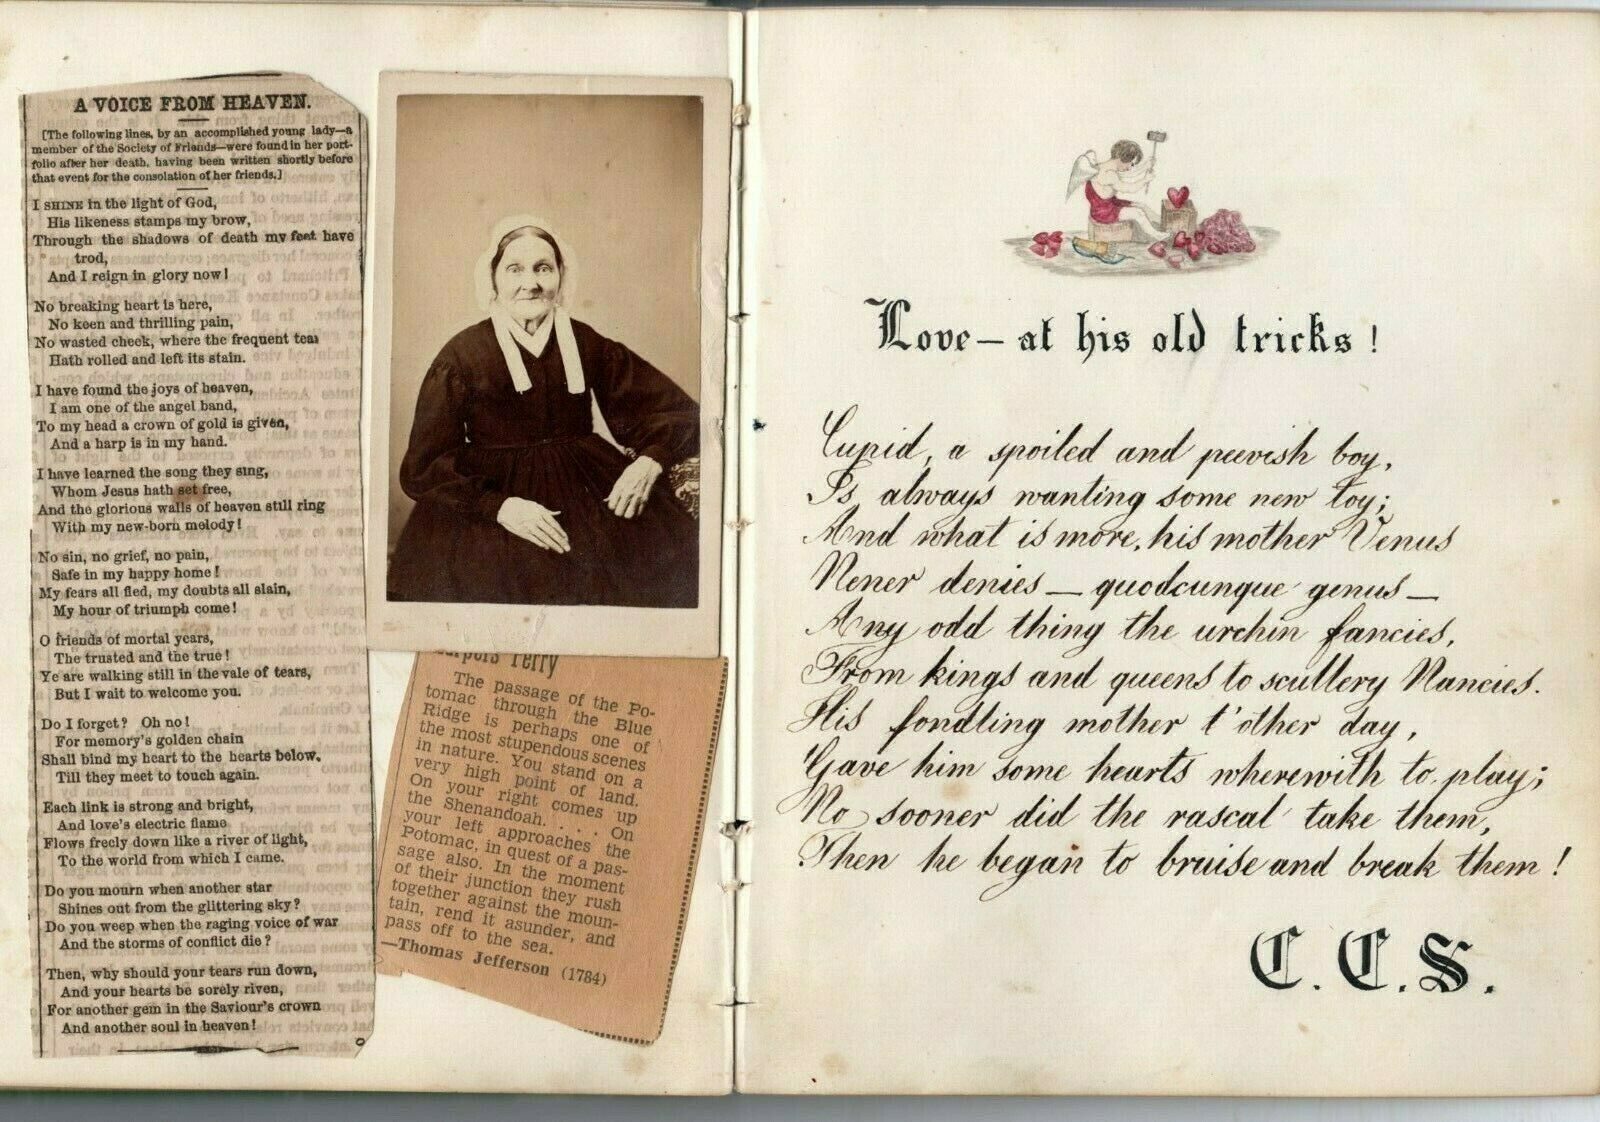 A VOICE FROM HEAVEN.
[The following lines, by an accomplished young lady—a
member of the Society of Friends—were found in her port-
folio after her death, having been written shortly before
that event for the consolation of her friends.]
I SHINE in the light of God,
His likeness stamps my brow,
Through the shadows of death my feet have
trod,
And I reign in glory now!
No breaking heart is here,
No keen and thrilling pain,
No wasted cheek, where the frequent tear
Hath rolled and left its stain.
I have found the joys of heaven,
I am one of the angel band,
To my head a crown of gold is given,
And a harp is in my hand.
I have learned the song they sing,
Whom Jesus hath set free,
And the glorious walls of heaven still ring
With my new-born melody!
No sin, no grief, no pain,
Safe in my happy home!
My fears all fled, my doubts all slain,
My hour of triumph come!
O friends of mortal years,
The trusted and the true!
Ye are walking still in the vale of tears,
But I wait to welcome you.
Do I forget? Oh no!
For memory's golden chain
Shall bind my heart to the hearts below,
Till they meet to touch again.
Each link is strong and bright,
And love's electric flame
Flows freely down like a river of light,
To the world from which I came.
Do you mourn when another star
Shines out from the glittering sky?
Do you weep when the raging voice of war
And the storms of conflict die?
Then, why should your tears run down,
And your hearts be sorely riven,
For another gem in the Saviour's crown
And another soul in heaven!
Harpers Ferry
The passage of the Po-
tomac through the Blue
Ridge is perhaps one of
the most stupendous scenes
in nature. You stand on a
very high point of land.
On your right comes up
the Shenandoah. . . . On
your left approaches the
Potomac, in quest of a pas-
sage also. In the moment
of their junction they rush
together against the moun-
tain, rend it asunder, and
pass off to the sea.
—Thomas Jefferson (1784)
Love—at his old tricks!
Cupid, a spoiled and peevish boy,
Is always wanting some new toy;
And what is more, his mother Venus
Never denies — quodcunque genus —
Any odd thing the urchin fancies,
From kings and queens to scullery Nancies.
His fondling mother t'other day,
Gave him some hearts wherewith to play;
No sooner did the rascal take them,
Then he began to bruise and break them!
C. C. S.